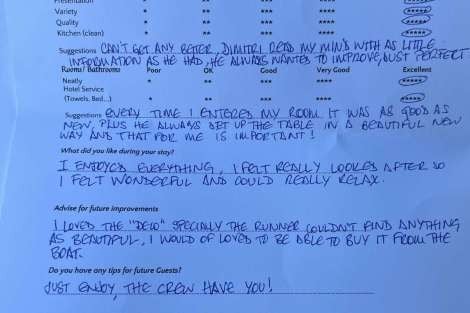 Presentation * ** *** **** *****
Variety * ** *** **** *****
Quality * ** *** **** *****
Kitchen (clean) * ** *** **** *****
Suggestions CAN'T GET ANY BETTER, DIMITRI READ MY MIND WITH AS LITTLE
INFORMATION AS HE HAD, HE ALWAYS WANTED TO IMPROVE, JUST PERFECT
Rooms/ Bathrooms Poor OK Good Very Good Excellent
Neatly * ** *** **** *****
Hotel Service
(Towels, Bed...) * ** *** **** *****
Suggestions EVERY TIME I ENTERED MY ROOM IT WAS AS GOOD AS
NEW, PLUS HE ALWAYS SET UP THE TABLE IN A BEAUTIFUL NEW
WAY AND THAT FOR ME IS IMPORTANT!
What did you like during your stay?
I ENJOYED EVERYTHING, I FELT REALLY LOOKED AFTER SO
I FELT WONDERFUL AND COULD REALLY RELAX.
Advise for future improvements
I LOVED THE "DECO" SPECIALLY THE RUNNER COULDN'T FIND ANYTHING
AS BEAUTIFUL, I WOULD OF LOVED TO BE ABLE TO BUY IT FROM THE
BOAT.
Do you have any tips for future Guests?
JUST ENJOY, THE CREW HAVE YOU!